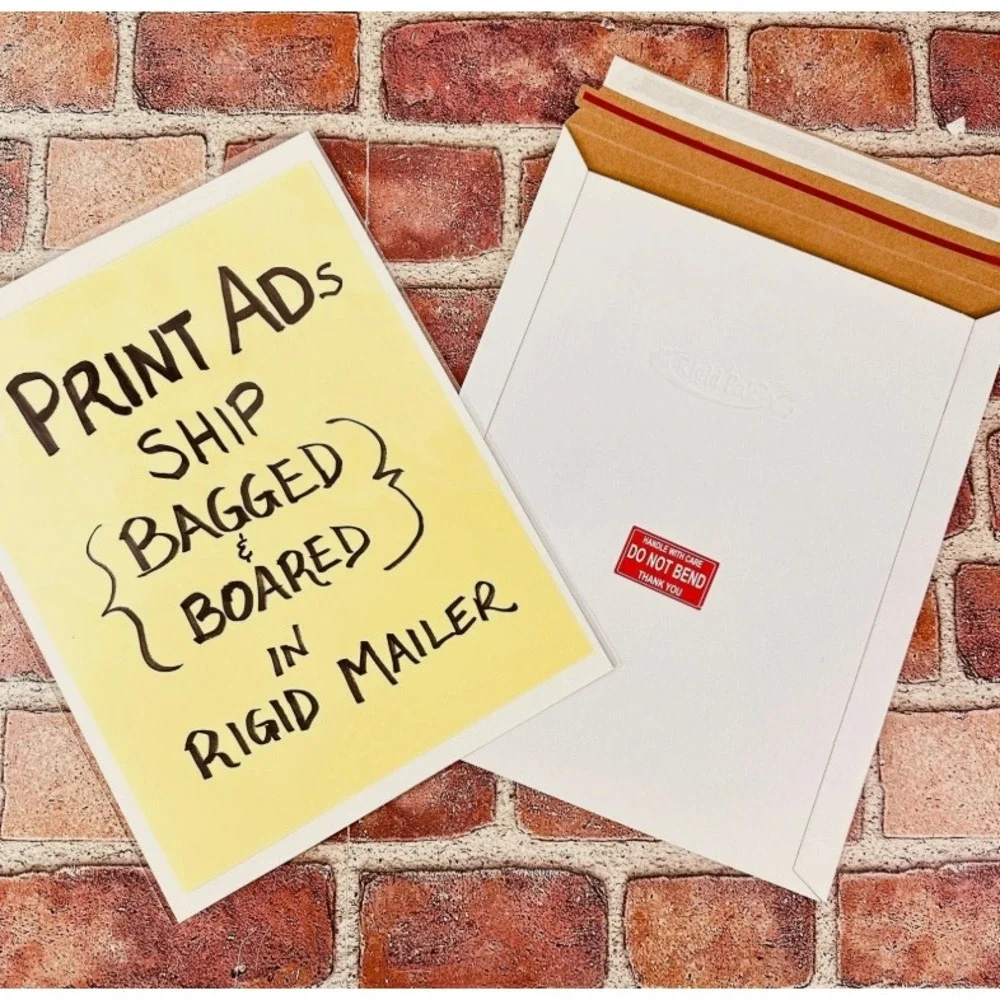 PRINT ADs
SHIP
{BAGGED
&
BOARED}
IN
RIGID MAILER
HANDLE WITH CARE
DO NOT BEND
THANK YOU